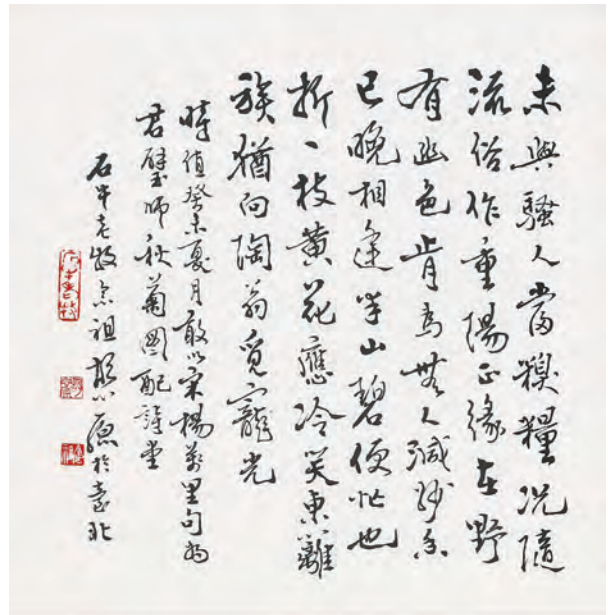 未與騷人當糗糧況隨
流俗作重陽正緣在野
有幽色肯為無人減妙香
已晚相逢半山碧便忙也
折一枝黃花應冷笑東籬
族猶向陶翁覓寵光
時值癸未夏月敢以宋楊萬里句為
君璧師秋菊圖配詩堂
石牛老牧念祖於臺北